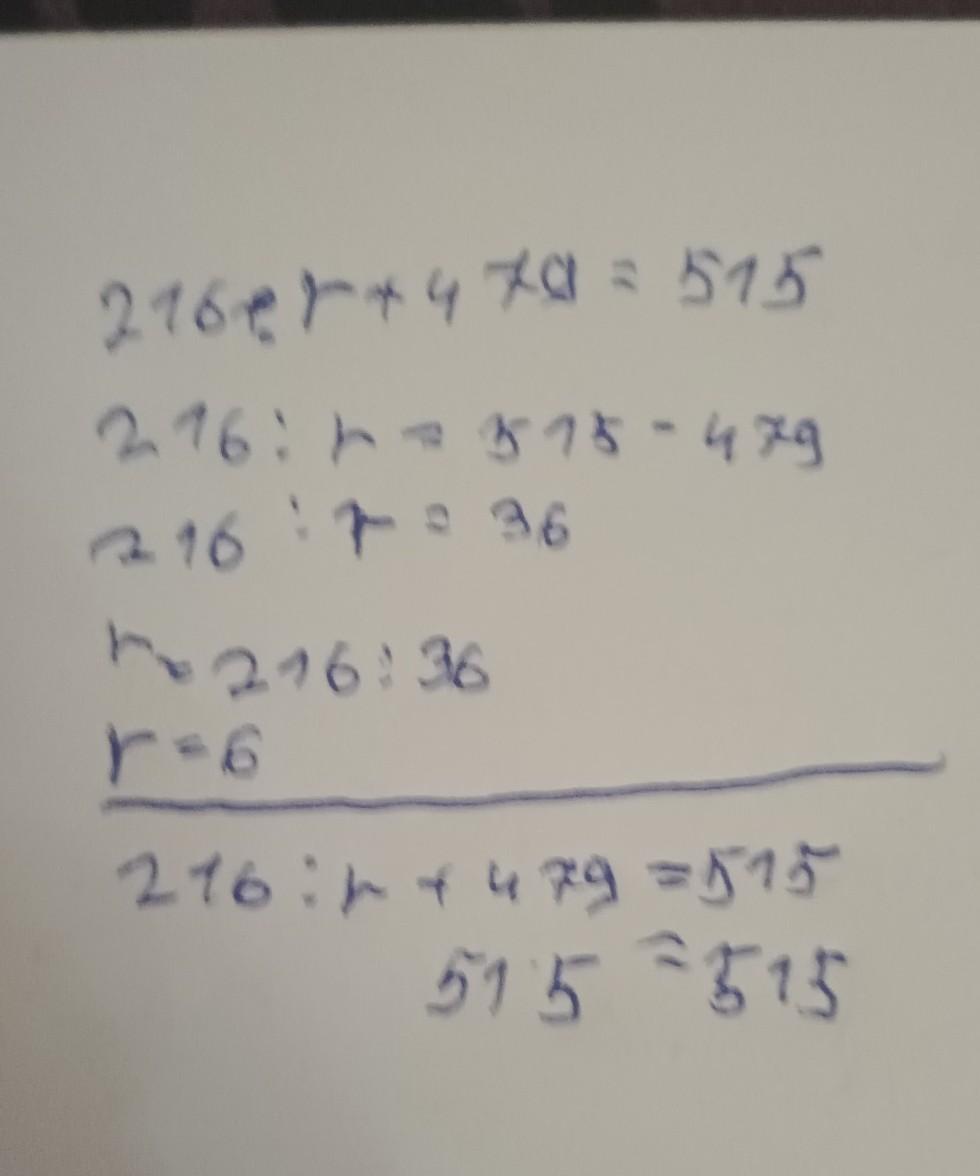 216:r+479=515
216:r=515-479
216:r=36
r=216:36
r=6
216:r+479=515
515=515